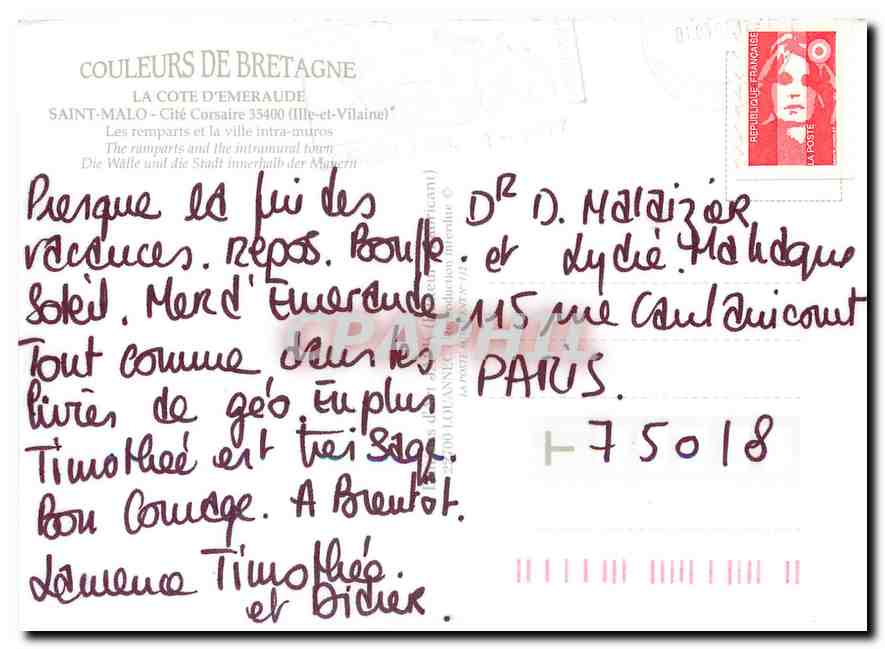 COULEURS DE BRETAGNE
LA COTE D'EMERAUDE
SAINT-MALO - Cité Corsaire 35400 (Ille-et-Vilaine)
Les remparts et la ville intra-muros
The ramparts and the intramural town
Die Wälle und die Stadt innerhalb der Mauern
Presque la fin des
vacances. Repos. Bouffe.
Soleil. Mer d'Emeraude.
Tout comme dans les
livres de géo. En plus
Timothée est très sage.
Bon Courage. A Bientôt.
Laurence Timothée.
et Didier.
DR D. Malaizier
et Lydie
115 rue Caulaincourt
PARIS.
75018
REPUBLIQUE FRANÇAISE
LA POSTE
CPAPHIL
LOUANNEC